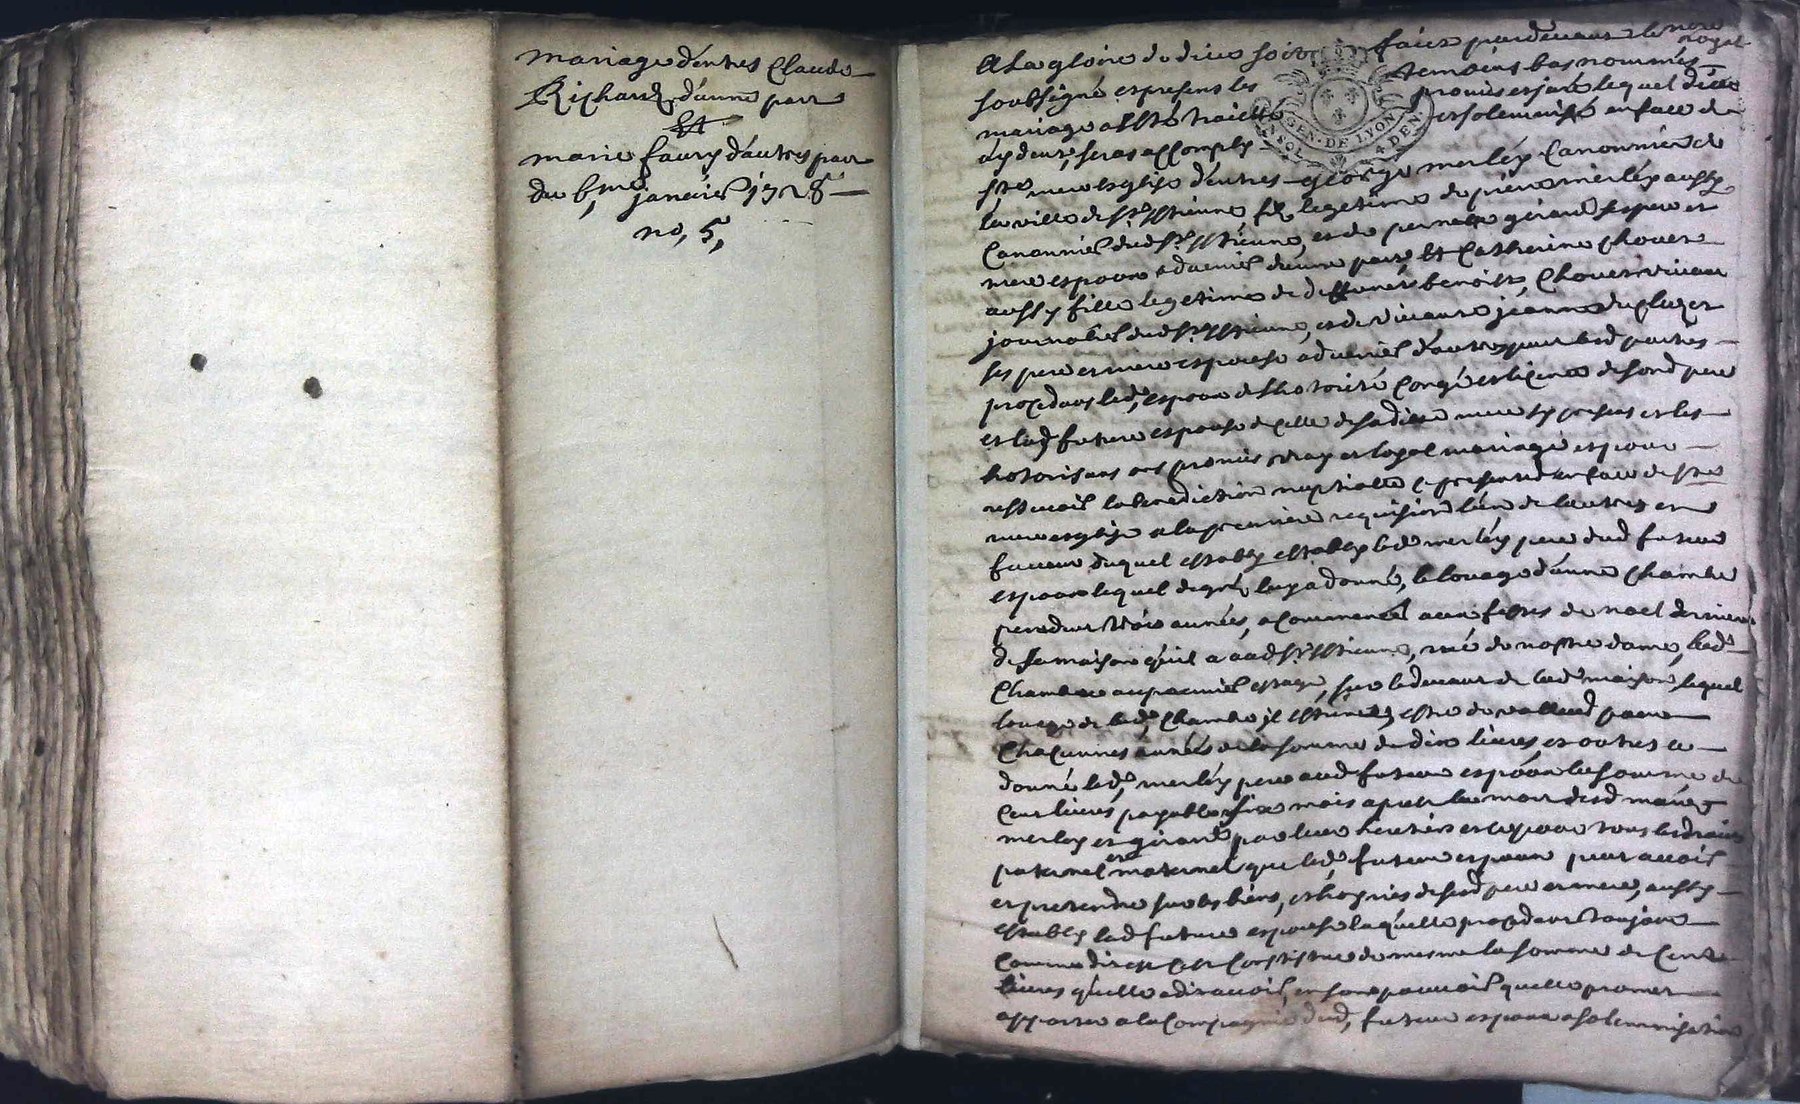 mariage d'entres Claude
Richard d'aunne part
Et
marie faury d'autres part
du 6me janvier 1728
no, 5,
A La gloire de dieu soit faict pardevant le nore royal
soubsigné et presens les temoins bas nommés
mariage a esté traicté promis et juré lequel dieu
aydent, seras accomply et solemnisé en face de
ste mere esglise d'entres george merley Canonnier de
la ville de st estienne fils legetime de piere merley aussy
Canonnier dud st estienne, et de pernette girard ses pere et
mere espoux advenir d'une part, Et Catherine Chovet
aussy fille legetime de deffunct benoist Chovet vivant
journalier dud st estienne, et de vivante jeanne
ses pere et mere espouse advenir d'autres part lesd parties
procedans led, espoux de l'hotorité congé et licence de sond pere
et lad future espouse de celle de sadite mere sy presens et les
hotorisans ont promis vray et loyal mariage et pour
resevoir la benediction nuptialle ce presenter en face de ste
mere esglise a la premiere requisition l'un de lautres en
faveur duquel estably led merley pere dud future
espoux lequel de gré luy a donné, le louage d'aunne chambre
pendent trois années, a commencer aux festes de noel dernier
de sa maison qu'il a aud st estienne, rue de nostre dame, lade
Chambre au premier estage, sur le devant de lade maison lequel
louage de lade, chambre jl estre de valleur pour
Chacunnes années de la somme de dix livres, et outres ce
donné led, merley pere aud future espoux la somme de
Cent livres payable six mois apres la mort desd mariés
merley et girard par leur heritiers et ce pour tous les droits
paternel et maternel que led, future espoux peut avoir
et pretendre sur les biens, et de sesd pere et mere, aussy
estably lad future espouse laquelle procedant toujours
Comme dit est c'est Constistuée de mesme la somme de Cent
livres qu'elle a dit avoir, en son pouvoir quelle promet
apporter a la Compagnie dud, future espoux a solemnisation
GEN. DE LYON